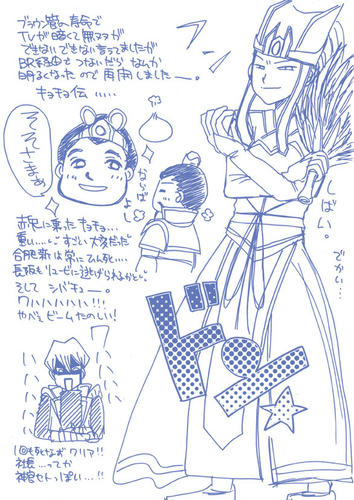 ブラウン管の寿命で
TVが暗くて無双が
できないできない言ってましたが
BR経由でつないだら なんか
明るくなったので再開しました—。
キョキョ伝 ‥‥
そろそろさまぁ
ならば
よし
赤兎に乗ったキョキョ…
重い…。すごい大変だった
合肥新は学にてムん死い…
長坂もリュービに逃げられるかと。
そして シバキュー。
ワハハハハハ!!!
やべえビームたのしい!
しばい。
でかい…
ドン
ワハハハハハハ
ハハハハハハ
クリア!!
社長…ってか
神官せんっぽい…!!